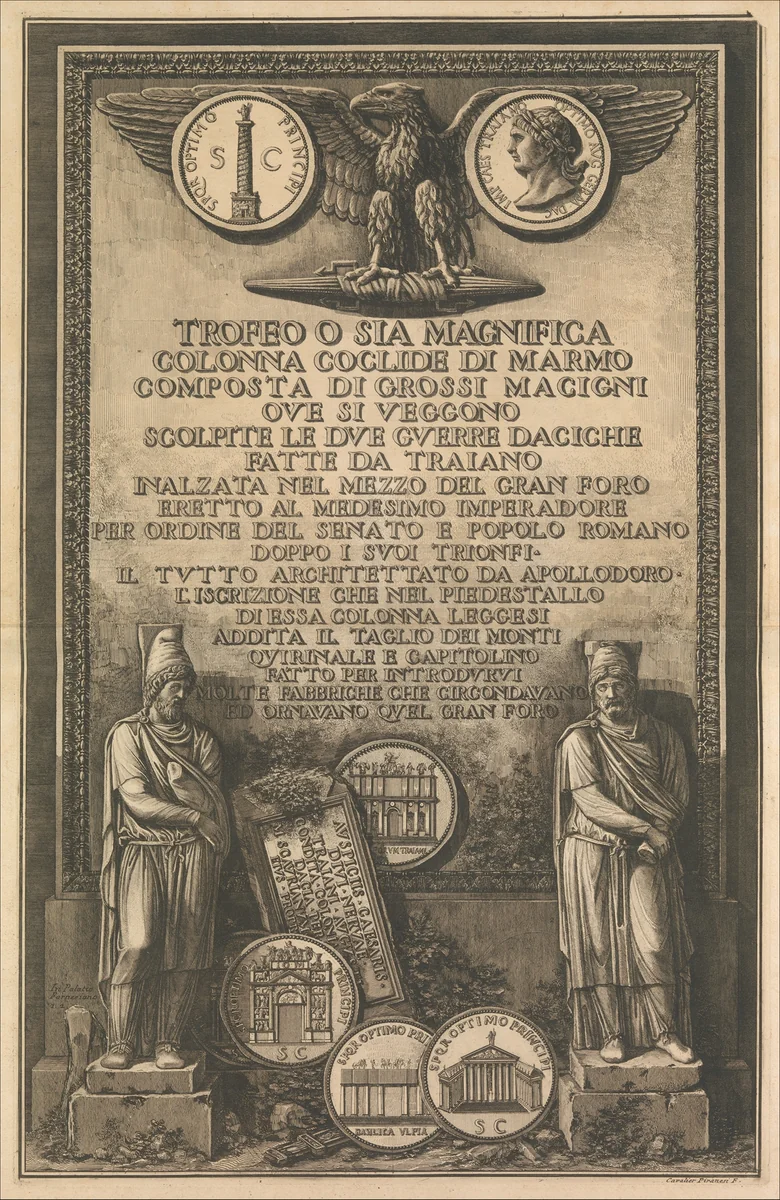 SPQR OPTIMO PRINCIPI
S C
IMP CAES TRAIANO OPTIMO AVG GERM DAC
TROFEO O SIA MAGNIFICA
COLONNA COCLIDE DI MARMO
COMPOSTA DI GROSSI MACIGNI
OVE SI VEGGONO
SCOLPITE LE DVE GVERRE DACICHE
FATTE DA TRAIANO
INALZATA NEL MEZZO DEL GRAN FORO
ERETTO AL MEDESIMO IMPERADORE
PER ORDINE DEL SENATO E POPOLO ROMANO
DOPPO I SVOI TRIONFI·
IL TVTTO ARCHITETTATO DA APOLLODORO·
L'ISCRIZIONE CHE NEL PIEDESTALLO
DI ESSA COLONNA LEGGESI
ADDITA IL TAGLIO DEI MONTI
QVIRINALE E CAPITOLINO
FATTO PER INTRODVRVI
MOLTE FABBRICHE CHE CIRCONDAVANO
ED ORNAVANO QVEL GRAN FORO
TRAIANI
AVSPICIIS · CAESARIS ·
DIVI · NERVAE
TRAIANI
CONDITA · COLON
PRINCIPI
S C
SPQR OPTIMO PRI
BASILICA VLPIA
SPQR OPTIMO PRINCIPI
S C
In Palatio
Farnesiano
Cavalier Piranesi F.